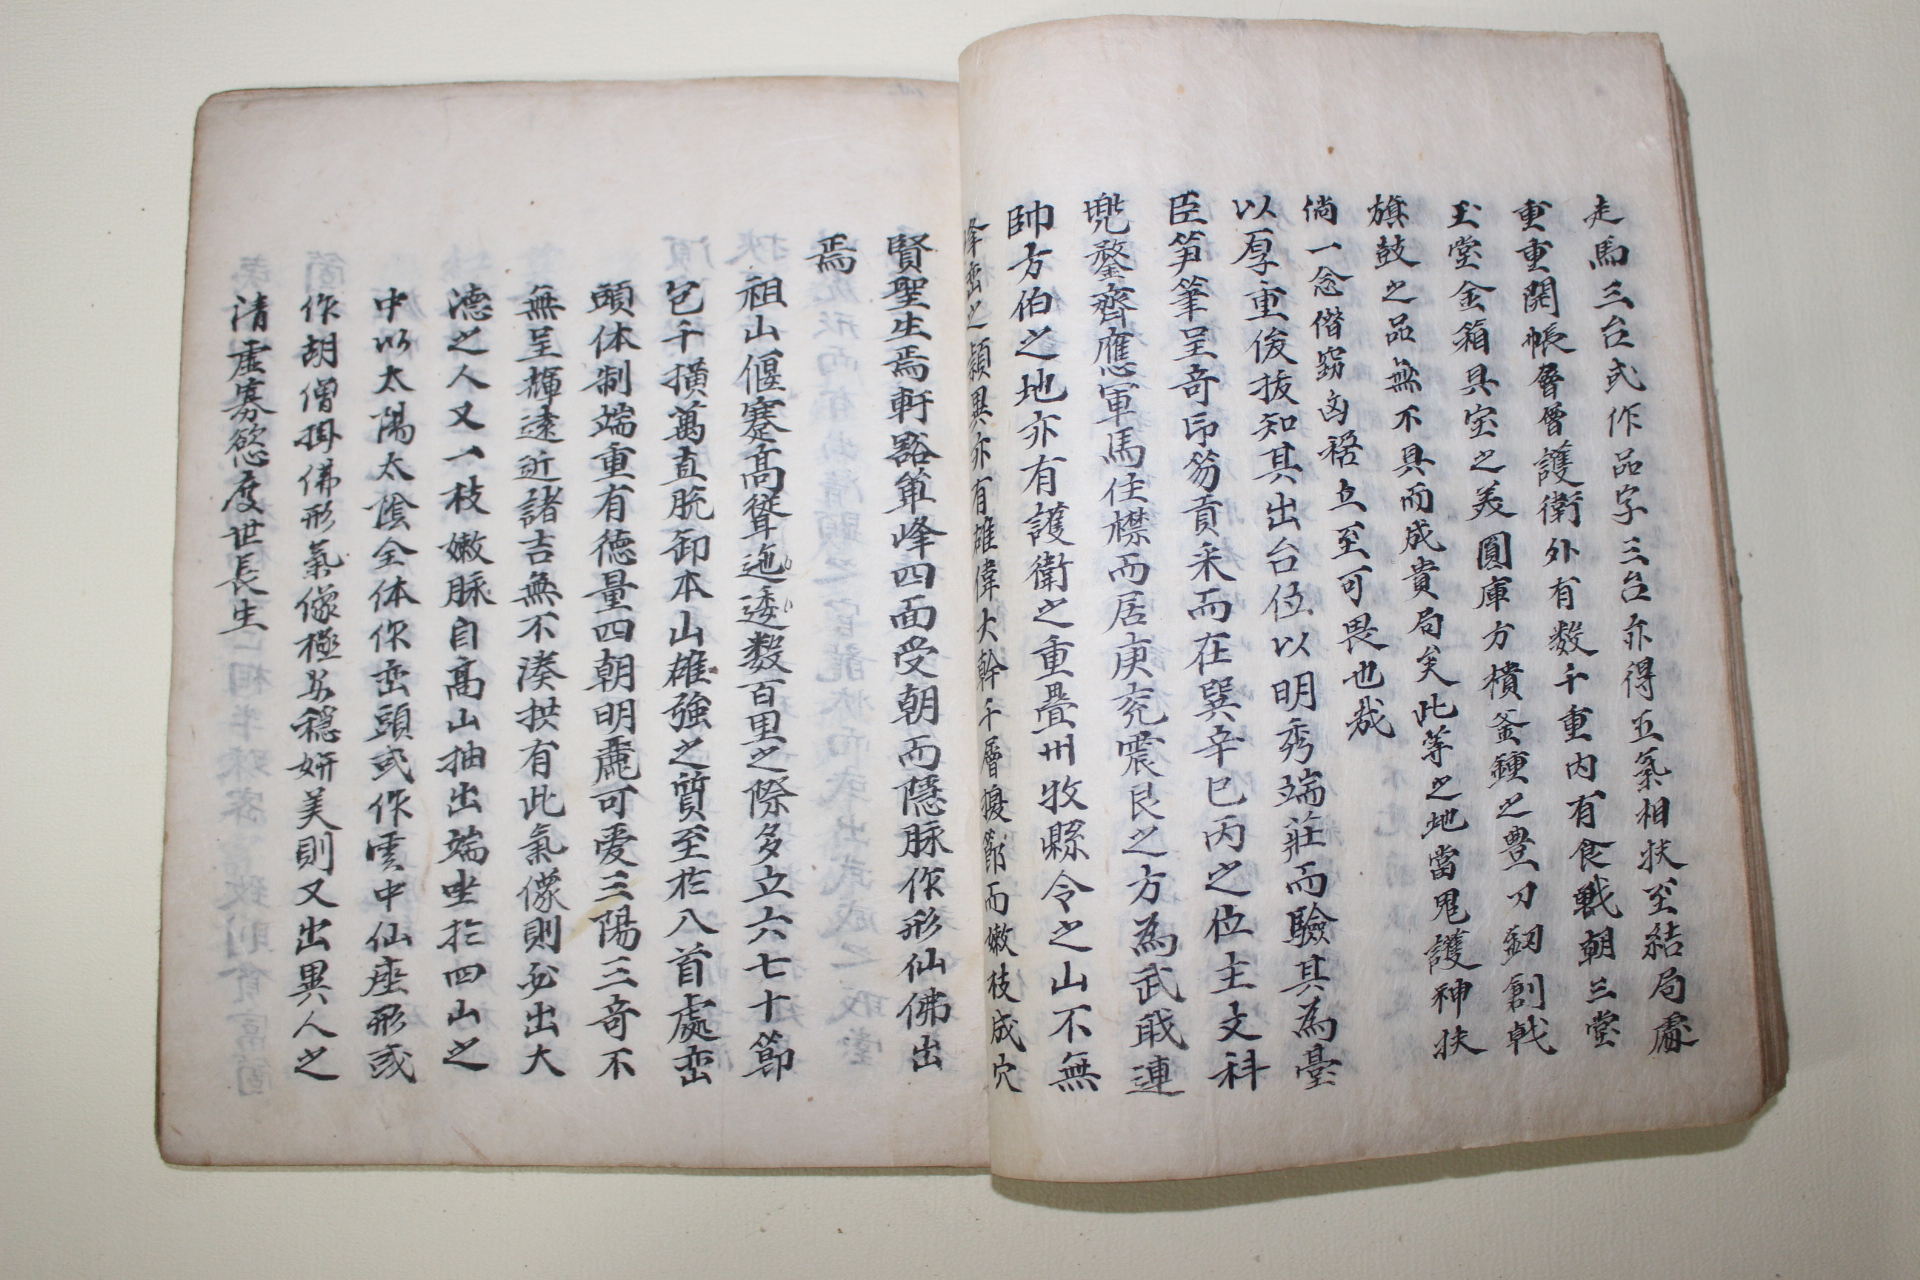 走馬三台式作品字三台亦得五氣相扶至結局處
重重開帳層層護衛外有数千重內有食戰朝三堂
玉堂金箱具宝之美圓庫方樻釜鍾之豊刀釼創戟
旗鼓之品無不具而成貴局矣此等之地當鬼護神扶
倘一念僭窃凶禍立至可畏也哉
以厚重俊拔知其出台位以明秀端莊而驗其為臺
臣笋筆呈奇印笏貢采而在巽辛巳丙之位主文科
兜鍪齊應軍馬住襟而居庚兊震艮之方為武戢連
帥方伯之地亦有護衛之重疊州牧縣令之山不無
峰巒之頴異亦有雄偉大幹千層擾節而嫩枝成穴
賢聖生焉軒豁單峰四面受朝而隱脉作形仙佛出
焉
祖山偃蹇高聳迤逶数百里之際多立六七十節
包千撗萬直脱卸本山雄強之質至於八首處巒
頭体制端重有德量四朝明麗可爱三陽三奇不
無呈輝遠近諸吉無不湊拱有此氣像則必出大
德之人又一枝嫩脉自高山抽出端坐於四山之
中以太陽太陰全体作巒頭或作雲中仙座形或
作胡僧掛佛形氣像極安穩妍美則又出異人之
清虛寡慾度世長生